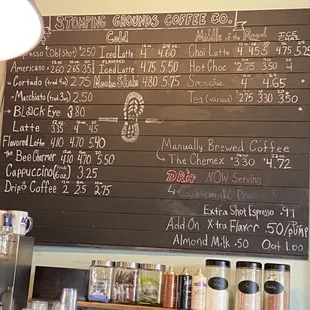 STOMPING GROUNDS COFFEE CO.
Cold
Middle of the Road
Espresso (Dbl Shot) 2.50
Americano 2.60 2.65 3.15
Cortado (trad 4oz) 2.75
Macchiato (trad 3oz) 2.50
BLACK EYE 3.80
Latte 3.35 4 4.45
Flavored Latte 4.10 4.70 5.40
The Bee Charmer 4.10 4.70 5.50
Cappuccino 3.25
Drip Coffee 2 2.25 2.75
Iced Latte 4
FLAVORED
Iced Latte 4.75 5.50
Mocha Shake 4.80 5.75
Chai Latte
Hot Choc 2.75 3.50 4
4 4.65
Tea 2.75 3.30 3.50
Manually Brewed Coffee
The Chemex 3.30 4.72
Drip NOW Serving
Extra Shot Espresso .97
Add On Xtra Flavor .50/pump
Almond Milk .50 Oat 1.00